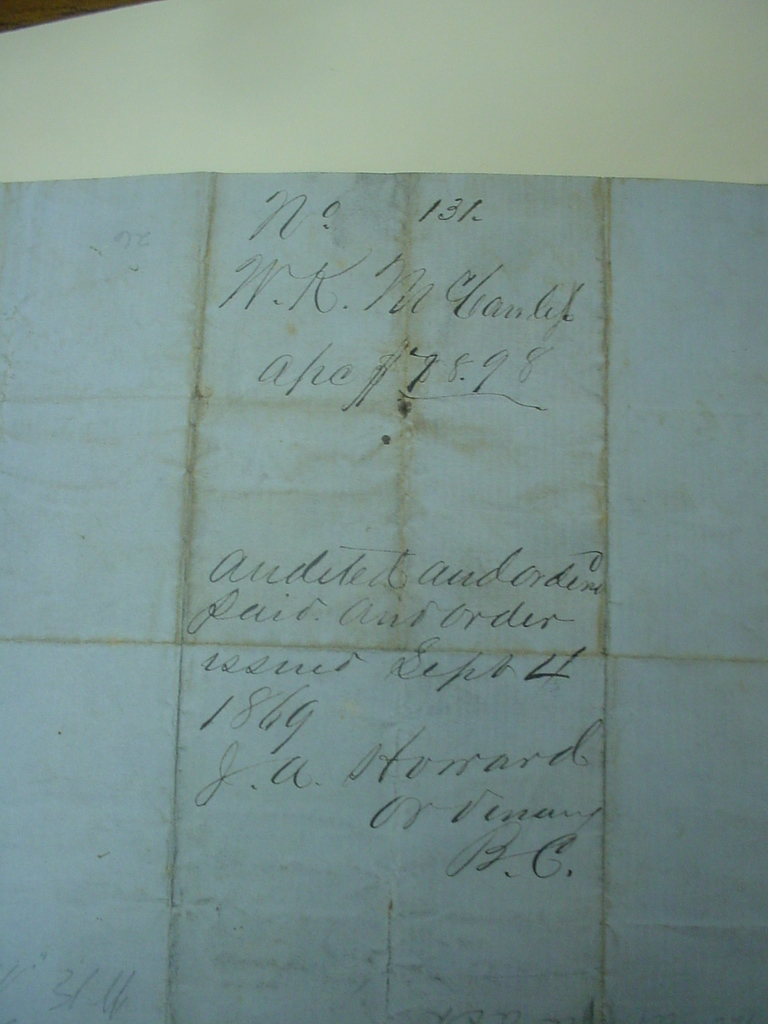 No 131.
W. K. McCauley
a/c $78.98
audited and ordered
paid. and order
issued Sept 4
1869
J. A. Howard
Ordinary
B. C.